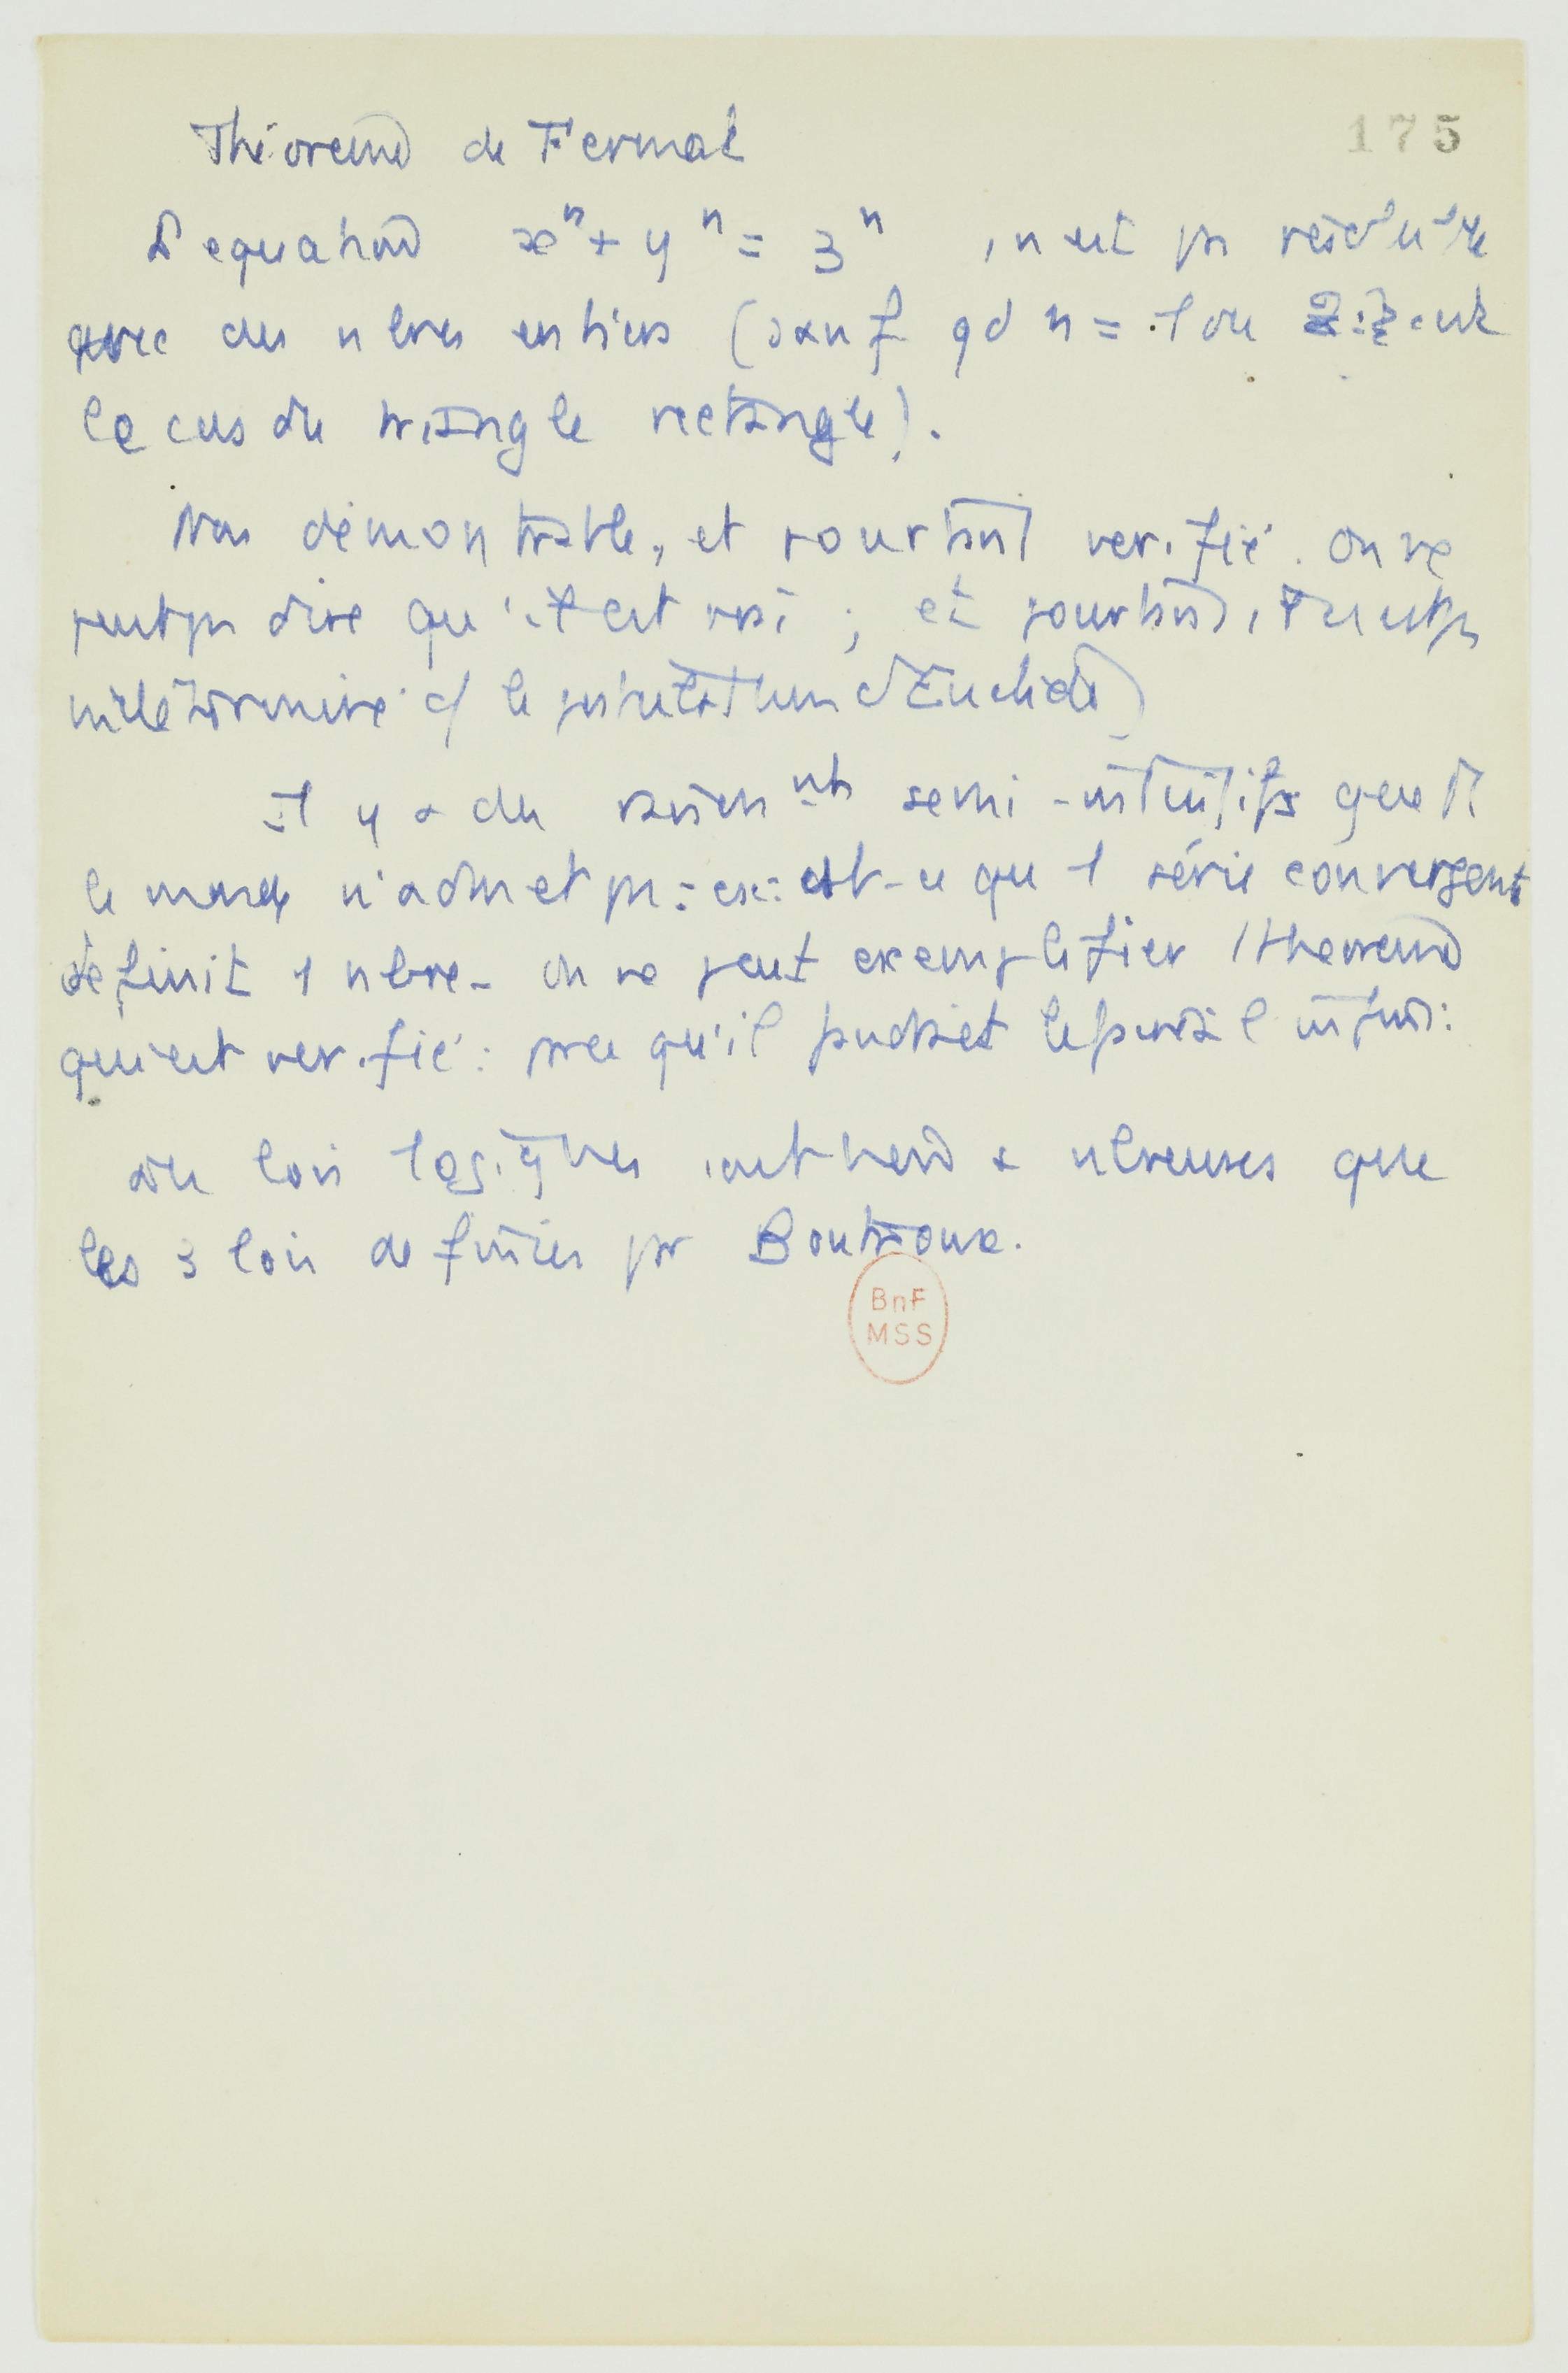 175
Théorème de Fermat
L'équation xⁿ + yⁿ = zⁿ, n'est pas résoluble
avec des nbres entiers (sauf qd n = 1 ou 2 : 2 : c'est
le cas du triangle rectangle).
Non démontrable, et pourtant vérifié. On ne
peut pas dire qu'il est vrai ; et pourtant, il n'est pas
indéterminé c/ le postulatum d'Euclide)
Il y a des raisonnts semi-intuitifs que tt
le monde n'admet pas : ex : est-ce que 1 série convergente
définit 1 nbre - on ne peut exemplifier 1 théorème
qui est vérifié : parce qu'il faudrait
des lois logiques sont bien + nbreuses que
les 3 lois définies par Boutroux.
BnF
MSS